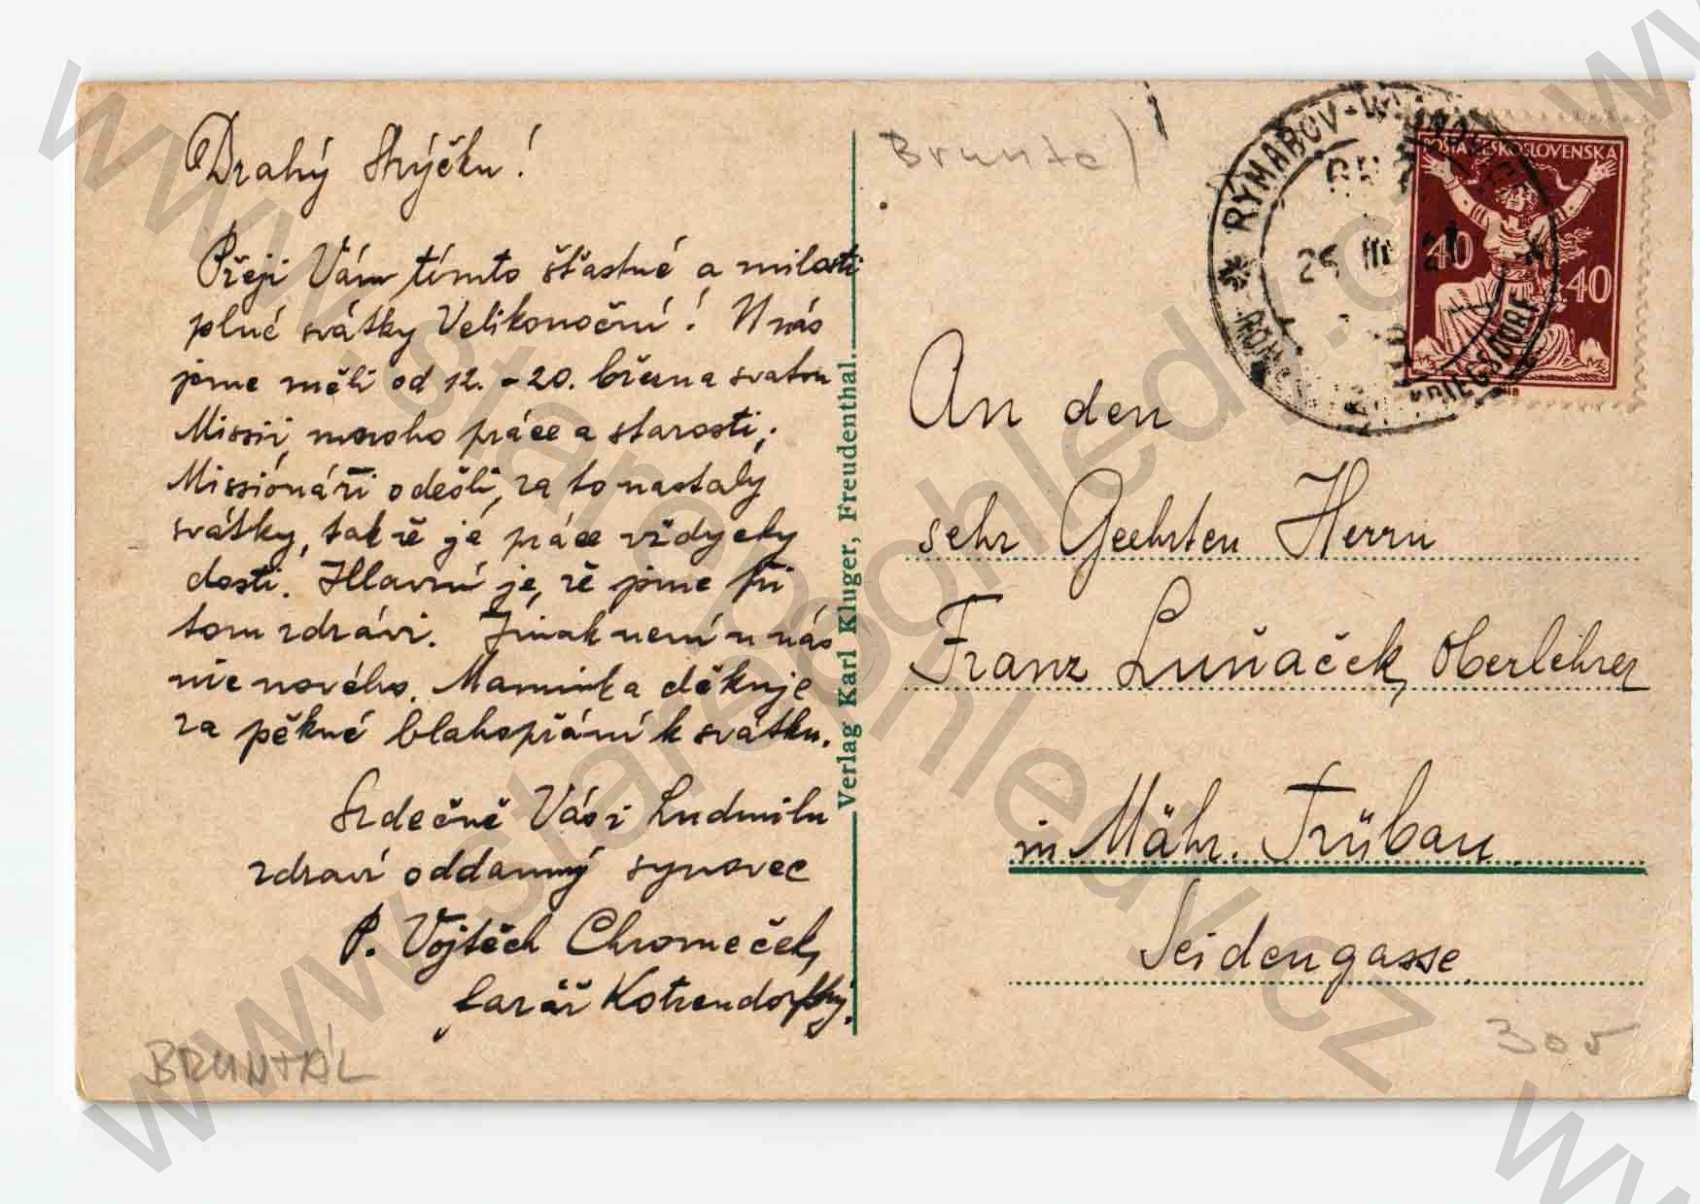 Drahý Strýčku!
Přeji Vám tímto šťastné a milosti
plné svátky Velikonoční! U nás
jsme měli od 12. - 20. března svatou
Missii, mnoho práce a starosti;
Missionáři odešli, za to nastaly
svátky, tak že je práce vždycky
dosti. Hlavní je, že jsme při
tom zdrávi. Jinak není u nás
nic nového. Maminka děkuje
za pěkné blahopřání k svátku.
Srdečně Vás i Ludmilu
zdraví oddanný synovec
P. Vojtěch Chromeček,
farář Kotzendorfský.
BRUNTÁL
Verlag Karl Kluger, Freudenthal.
Bruntál
RÝMAŘOV
KRIEGSDORF
POŠTA ČESKOSLOVENSKÁ
40 40
An den
sehr Geehrten Herrn
Franz Luňaček, Oberlehrer
in Mähr. Trübau
Seidengasse.
305
www.starepohledy.cz
www.starepohledy.cz